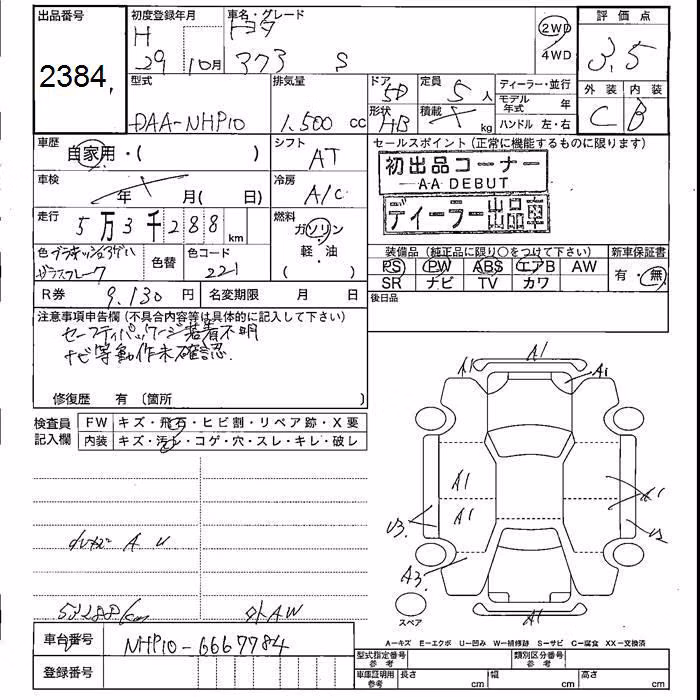 出品番号
2384
初度登録年月
H
29 10月
車名・グレード
トヨタ
373 S
2WD
4WD
評価点
3.5
外装 内装
C B
型式
DAA-NHP10
排気量
1.500 cc
ドア
5D
形状
HB
定員
5 人
積載
kg
ディーラー・並行
モデル年式 年
ハンドル 左・右
車歴
自家用・( )
シフト
AT
セールスポイント (正常に機能するものに限ります)
初出品コーナー
AA DEBUT
ディーラー出品車
車検
年 月( 日)
冷房
A/C
走行
5万3千288 km
燃料
ガソリン
軽・油
( )
色
ガラスフレーク
色替
色コード
221
装備品 (純正品に限り○をつけて下さい)
新車保証書
PS PW ABS エアB AW
SR ナビ TV カワ
有・無
R券 9.130 円
名変期限 月 日
後日品
注意事項申告欄 (不具合内容等は具体的に記入して下さい)
セーフティパッケージ装着不明
ナビ等動作未確認.
修復歴 有 〔箇所 〕
検査員記入欄
FW キズ・飛石・ヒビ割・リペア跡・X要
内装 キズ・汚レ・コゲ・穴・スレ・キレ・破レ
A1
A1
A1
A1
A1
A1
U3
A3
A1
スペア
A U
53288km
外AW
A-キズ E-エクボ U-凹み W-補修跡 S-サビ C-腐食 XX-交換済
車台番号 NHP10-6667784
登録番号
型式指定番号 参考
類別区分番号 参考
車庫証明用 参考
長さ cm
幅 cm
高さ cm